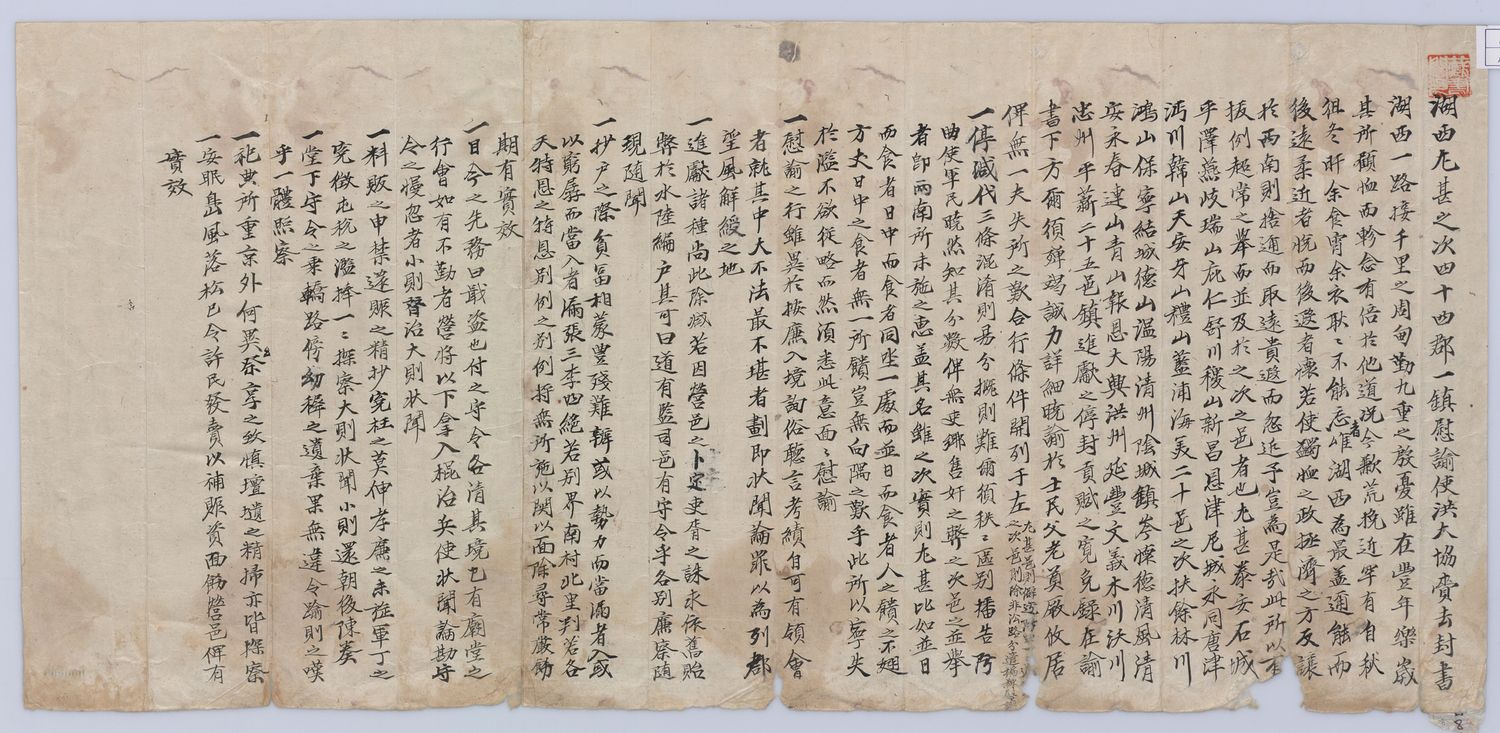 湖西尤甚之次四十四郡一鎮慰諭使洪大協賫去封書
湖西一路接千里之周甸勤九重之殷憂雖在豐年樂歲
其所顧恤而軫念有倍於他道況今歉荒挽近罕有自秋
徂冬旰余食宵余衣耿〻不能忘者唯湖西為最盖邇能而
後遠柔近者脫而後邊者懷若使蠲恤之政拯濟之方反讓
於兩南則捨通而取遠貴遐而忽近予豈為是哉此所以
拔例超常之擧而並及於之次之邑者也尤甚泰安石城
平澤燕歧瑞山庇仁舒川稷山新昌恩津尼城永同唐津
沔川韓山天安牙山禮山藍浦海美二十邑之次扶餘林川
鴻山保寧結城德山溫陽清州陰城鎮岑懷德清風清
安永春連山青山報恩大興洪州延豐文義木川沃川
忠州平薪二十五邑鎮進獻之停封貢賦之寬免錄在諭
書下方爾須殫竭誠力詳細曉諭於士民父老奠厥攸居
俾無一夫失所之歎合行條件開列于左
之次邑則除非沿路分遣
一停減代三條混淆則易分擬則難爾須秩〻區別播告
曲使軍民曉然知其分數俾無吏鄉售奸之弊之次邑之並擧
者卽兩南所未施之惠盖其名雖之次實則尤甚比如並日
而食者日中而食者同坐一處而並日而食者人之饋之不翅
方丈日中之食者無一所饋豈無向隅之歎乎此所以寧失
於濫不欲從略而然須悉此意面〻慰諭
一慰諭之行雖異於按廉入境詢俗聽言考績自可有領會
者就其中大不法最不堪者劃卽狀聞論罪以為列郡
望風解綬之地
一進獻諸種尚此除減若因營邑之卜定吏胥之誅求依舊貽
弊於水陸編戶其可曰道有監司邑有守令乎各別廉察隨
現隨聞
一抄戶之際貧富相蒙豐殘難辨或以勢力而當漏者入或
以窮孱而當入者漏張三李四絕若別界南村北里判若各
天特恩之特恩別例之別例將無所施以關以面除尋常嚴飭
期有實效
一目今之先務曰戢盜也付之守令各清其境已有廟堂之
行會如有不勤者營將以下拿入棍治兵使狀聞論勘守
令之慢忽者小則督治大則狀聞
一料販之申禁還賑之精抄冤枉之莫伸孝廉之未㫌軍丁之
冤徵屯稅之濫捧一〻探察大則狀聞小則還朝後陳奏
一堂下守令之乘轎路傍幼穉之遺棄果無違令踰則之嘆
乎一體照察
一祀典所重京外何異祭享之致愼壇壝之精掃亦皆探察
一安眠島風落松已令許民發賣以補賑資面飭營邑俾有
實效